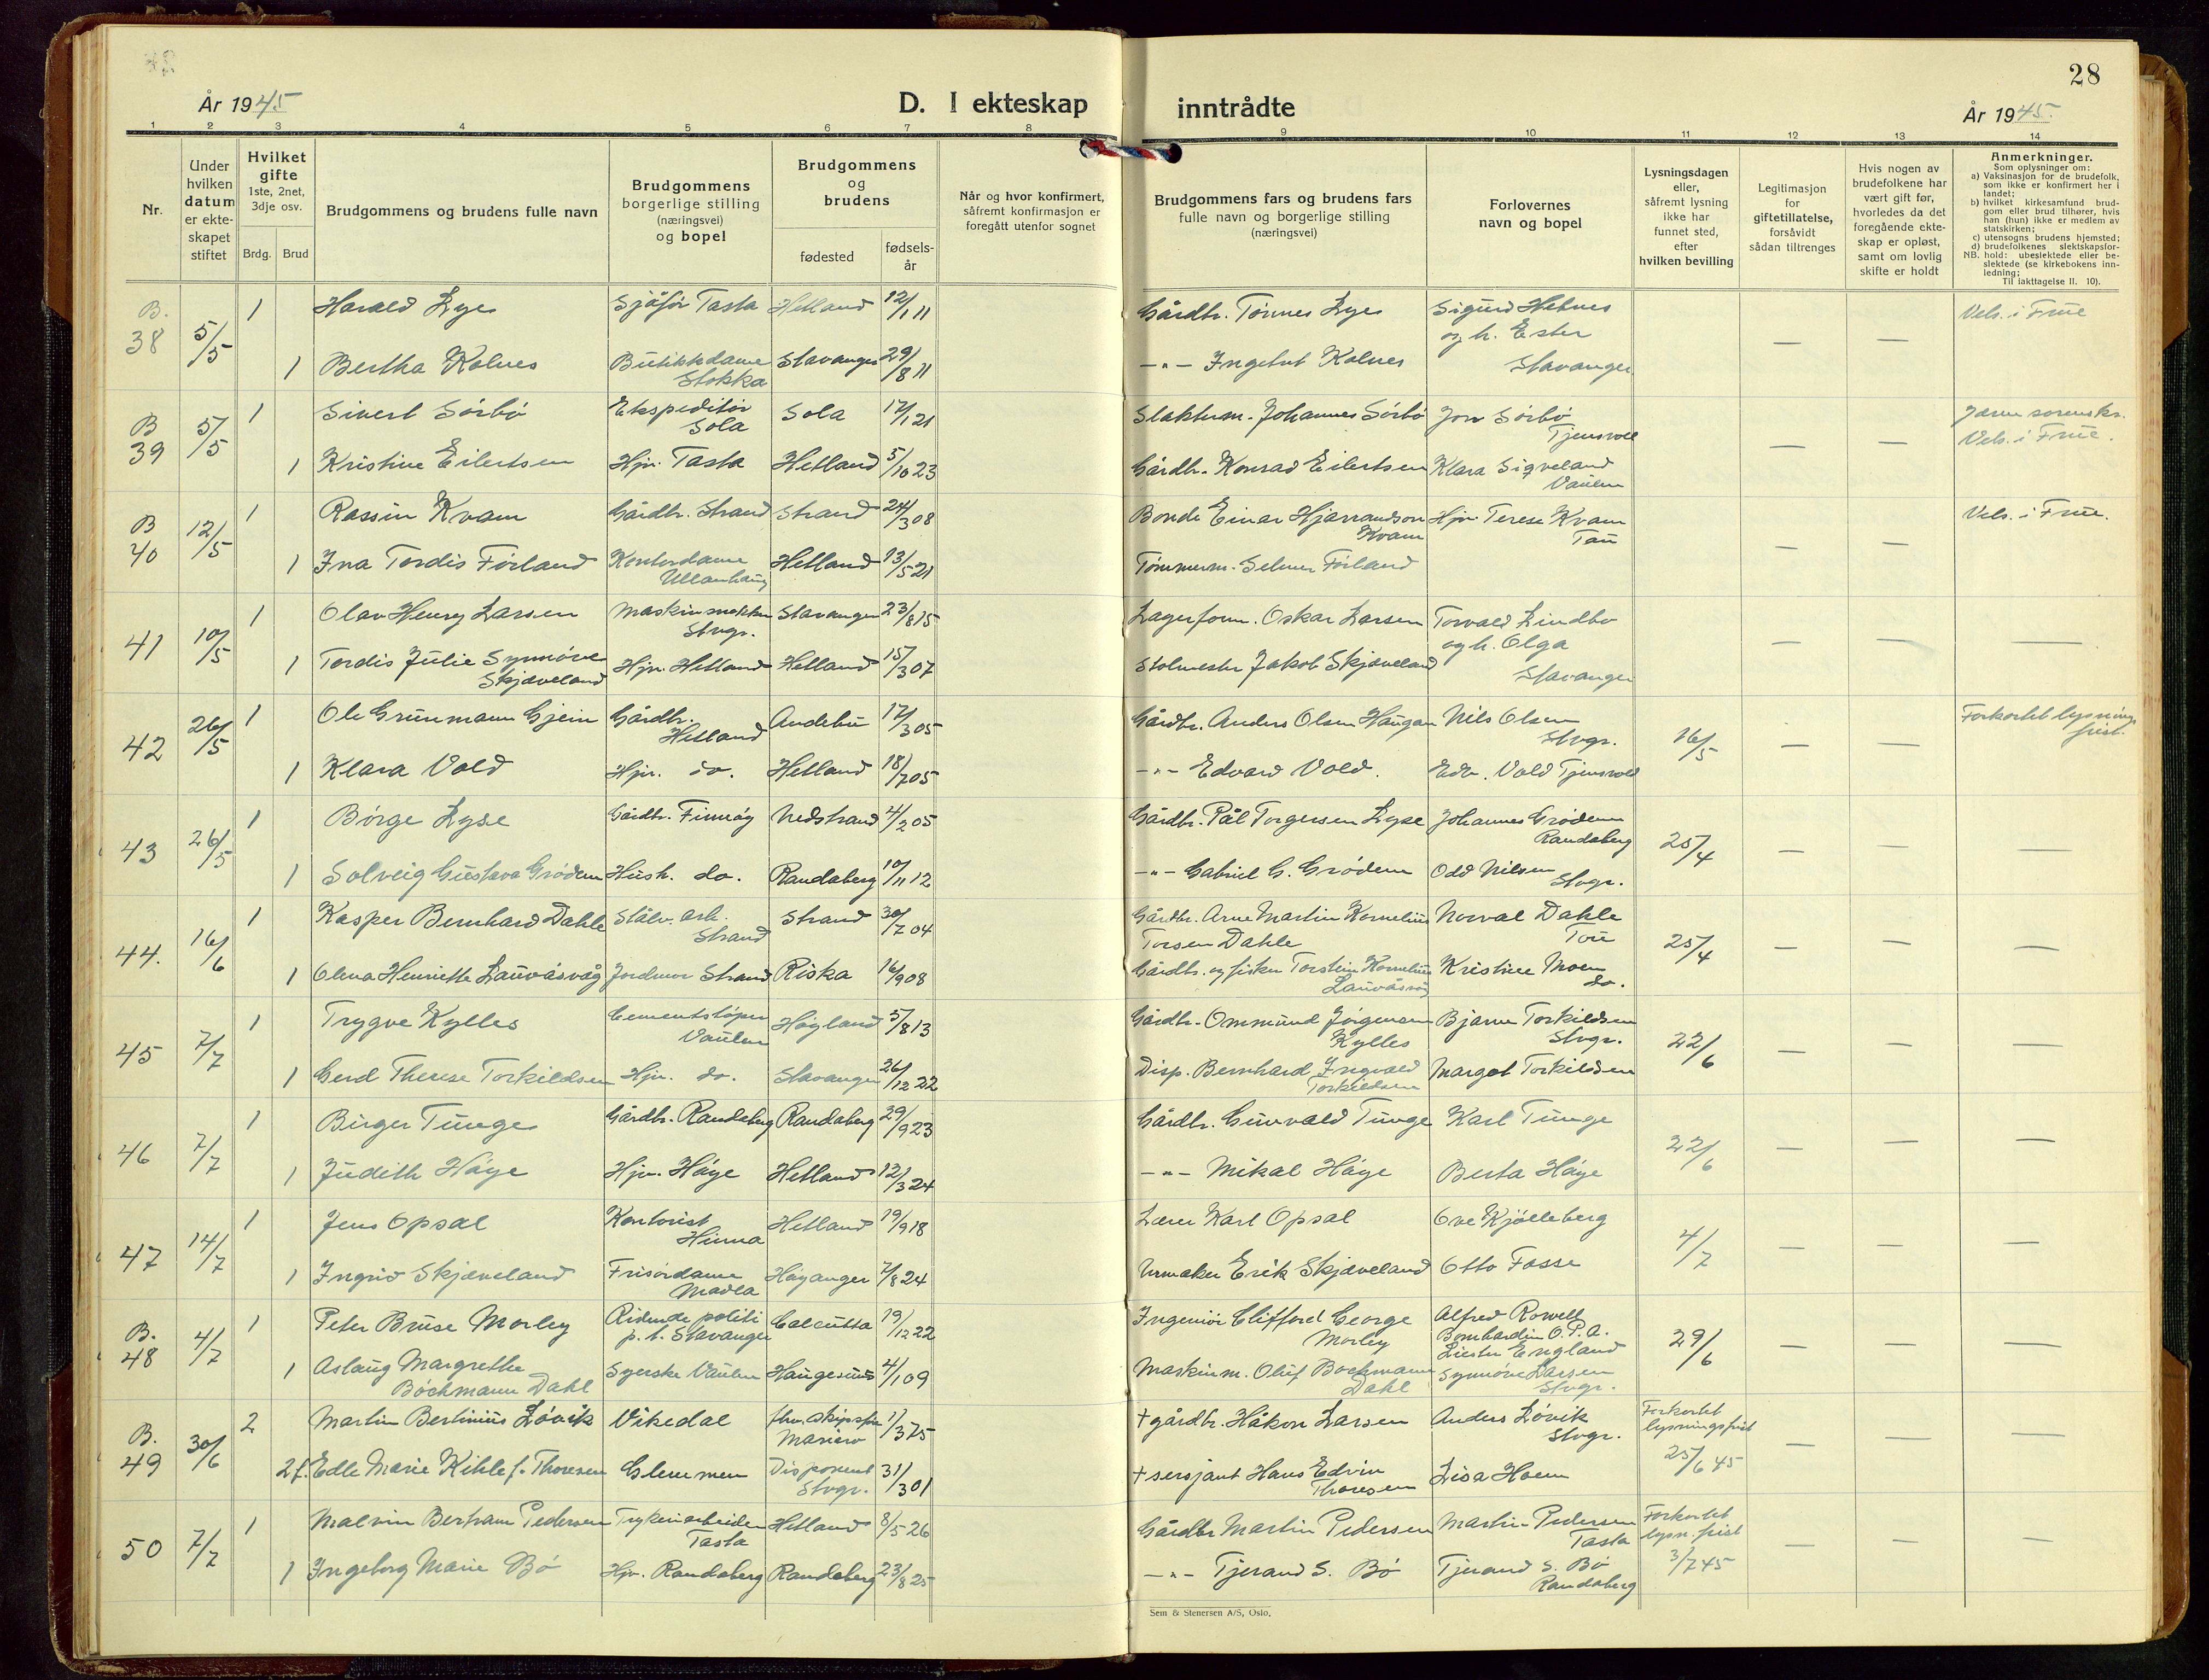 28
År 1945
D. I ekteskap inntrådte
År 1945.
1 2 3 4 5 6 7 8 9 10 11 12 13 14
Nr.
Under hvilken datum er ekteskapet stiftet
Hvilket gifte
1ste, 2net, 3dje osv.
Brdg. Brud
Brudgommens og brudens fulle navn
Brudgommens borgerlige stilling (næringsvei) og bopel
Brudgommens og brudens
fødested
fødsels-år
Når og hvor konfirmert,
såfremt konfirmasjon er
foregått utenfor sognet
Brudgommens fars og brudens fars
fulle navn og borgerlige stilling
(næringsvei)
Forlovernes
navn og bopel
Lysningsdagen
eller,
såfremt lysning
ikke har
funnet sted,
efter
hvilken bevilling
Legitimasjon
for
giftetillatelse,
forsåvidt
sådan tiltrenges
Hvis nogen av
brudefolkene har
vært gift før,
hvorledes da det
foregående ekte-
skap er opløst,
samt om lovlig
skifte er holdt
Anmerkninger.
Som oplysninger om:
a) Vaksinasjon for de brudefolk,
som ikke er konfirmert her i
landet;
b) hvilket kirkesamfund brud-
gom eller brud tilhører, hvis
han (hun) ikke er medlem av
statskirken;
c) utensogns brudens hjemsted;
d) brudefolkenes slektskapsfor-
NB. hold: ubeslektede eller be-
slektede (se kirkebokens inn-
ledning;
Til iakttagelse II. 10).
B. 38 5/5 1 Harald Lye Sjåfør Tasta Hetland 12/1 11 Gårdbr. Tønnes Lye Sigurd Hetnes og h. Ester Stavanger — — Vels. i Frue
1 Bertha Kolnes Butikkdame Stokka Stavanger 29/8 11 —"— Ingebret Kolnes
B 39 5/5 1 Sivert Sörbö Ekspeditör Sola Sola 17/1 21 Slakterm. Johannes Sörbö Jon Sörbö Tjensvoll — — Jæren sorenskr. Vels. i Frue.
1 Kristine Eilertsen Hjv. Tasta Hetland 5/10 23 Gårdbr. Konrad Eilertsen Klara Sigveland Vaulen
B 40 12/5 1 Rassin Kvam Gårdbr. Strand Strand 24/3 08 Bonde Einar Hjarrandson Kvam Hjv. Terese Kvam Tau — — Vels. i Frue.
1 Ina Tordis Førland Kontordame Ullenhaug Hetland 13/5 21 Tømmerm. Selmer Førland
41 10/5 1 Olav Henry Larsen Maskinsnekker Stvgr. Stavanger 23/8 15 Lagerform. Oskar Larsen Torvald Lindbo og h. Olga Stavanger — — —
1 Tordis Julie Synnöve Skjæveland Hjv. Hetland Hetland 15/3 07 Stolmester Jakob Skjæveland
42 26/5 1 Ole Grünmann Gjein Gårdbr. Hetland Andebu 17/3 05 Gårdbr. Anders Olsen Haugan Nils Olsen Stvgr. 16/5 — — Forkortet lysnings frist.
1 Klara Vold Hjv. do. Hetland 18/7 05 —"— Edvard Vold. Edv. Vold Tjensvoll
43 26/5 1 Börge Lyse Gårdbr. Finnöy Nedstrand 4/2 05 Gårdbr. Pål Torgersen Lyse Johannes Grödem Randaberg 25/4 — — —
1 Solveig Gustava Grödem Hush. do. Randaberg 10/11 12 —"— Gabriel G. Grödem Odd Nilsen Stvgr.
44. 16/6 1 Kasper Bernhard Dahle Stålv. arb. Strand Strand 30/7 04 Gårdbr. Arne Martin Kornelius Torsen Dahle Norval Dahle Tou 25/4 — — —
1 Olena Henriette Lauvåsvåg Jordmor Strand Riska 16/9 08 Gårdbr. og fisker Torstein Kornelius Lauvåsvåg Kristine Moen do.
45 7/7 1 Trygve Kylles Cementstöper Vaulen Høyland 5/8 13 Gårdbr. Ommund Jörgensen Kylles Bjarne Torkildsen Stvgr. 22/6 — — —
1 Gerd Therese Torkildsen Hjv. do. Stavanger 26/12 22 Disp. Bernhard Ingvald Torkildsen Margot Torkildsen
46 7/7 1 Birger Tunge Gårdbr. Randaberg Randaberg 29/9 23 Gårdbr. Gunvald Tunge Karl Tunge 22/6 — — —
1 Judith Höye Hjv. Höye Hetland 12/3 24 —"— Mikal Höye Berta Höye
47 14/7 1 Jens Opsal Kontorist Hinna Hetland 19/9 18 Lærer Karl Opsal Ove Kjölleberg 4/7 — — —
1 Ingrid Skjæveland Frisördame Madla Höyanger 7/8 24 Urmaker Erik Skjæveland Otto Fosse
B. 48 4/7 1 Peter Bruse Morley Ridende politi p. t. Stavanger Calcutta 19/12 22 Ingeniör Clifford George Morley Alfred Rowell Bombardier O.P.A. Liester England 29/6 — — —
1 Aslaug Margrethe Böckmann Dahl Syerske Vaulen Haugesund 4/1 09 Maskinm. Oluf Bockmann Dahl Synnöve Larsen Stvgr.
B. 49 30/6 2 Martin Bertinius Lövik Vikedal fhv. skipsfør Mariero 1/3 75 † gårdbr. Håkon Larsen Anders Lövik Stvgr. Forkortet lysningsfrist 25/6 45 — — —
2 f. Edle Marie Kihle f. Thoresen Glemmen Disponent Stvgr. 31/3 01 † sersjant Hans Edvin Thoresen Lisa Hoem
50 7/7 1 Malvin Bertram Pedersen Trykeriarbeider Tasta Hetland 8/5 26 Gårdbr Martin Pedersen Martin Pedersen Tasta Forkortet lysn. frist 3/7 45 — —
1 Ingeborg Marie Bö Hjv. Randaberg Randaberg 23/8 25 —"— Tjerand S. Bö Tjerand S. Bö Randaberg
Sem & Stenersen A/S, Oslo.